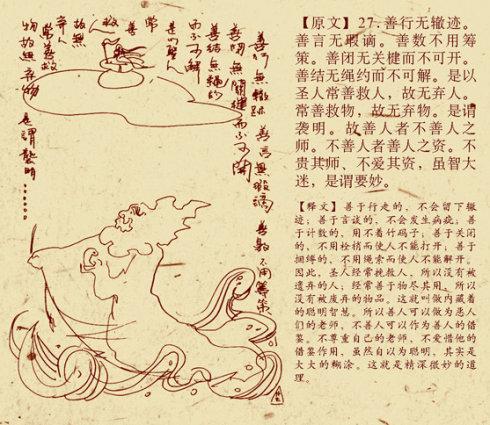 善行無轍跡 善言無瑕謫 善數不用籌策
善閉無關鍵而不可開
善結無繩約
而不可解
是以聖人
常
善
救人
故無
棄人
常善救
物故無棄物 是謂襲明……
【原文】27.善行无辙迹。
善言无瑕谪。善数不用筹
策。善闭无关楗而不可开。
善结无绳约而不可解。是以
圣人常善救人，故无弃人。
常善救物，故无弃物。是谓
袭明。故善人者不善人之
师。不善人者善人之资。不
贵其师、不爱其资，虽智大
迷，是谓要妙。
【释文】善于行走的，不会留下辙
迹；善于言谈的，不会发生病疵；善
于计数的，用不着竹码子；善于关闭
的，不用栓梢而使人不能打开；善于
捆缚的，不用绳索而使人不能解开。
因此，圣人经常挽救人，所以没有被
遗弃的人；经常善于物尽其用，所以
没有被废弃的物品。这就叫做内藏着
的聪明智慧。所以善人可以做为恶人
们的老师，不善人可以作为善人的借
鉴。不尊重自己的老师，不爱惜他的
借鉴作用，虽然自以为聪明，其实是
大大的糊涂。这就是精深微妙的道
理。